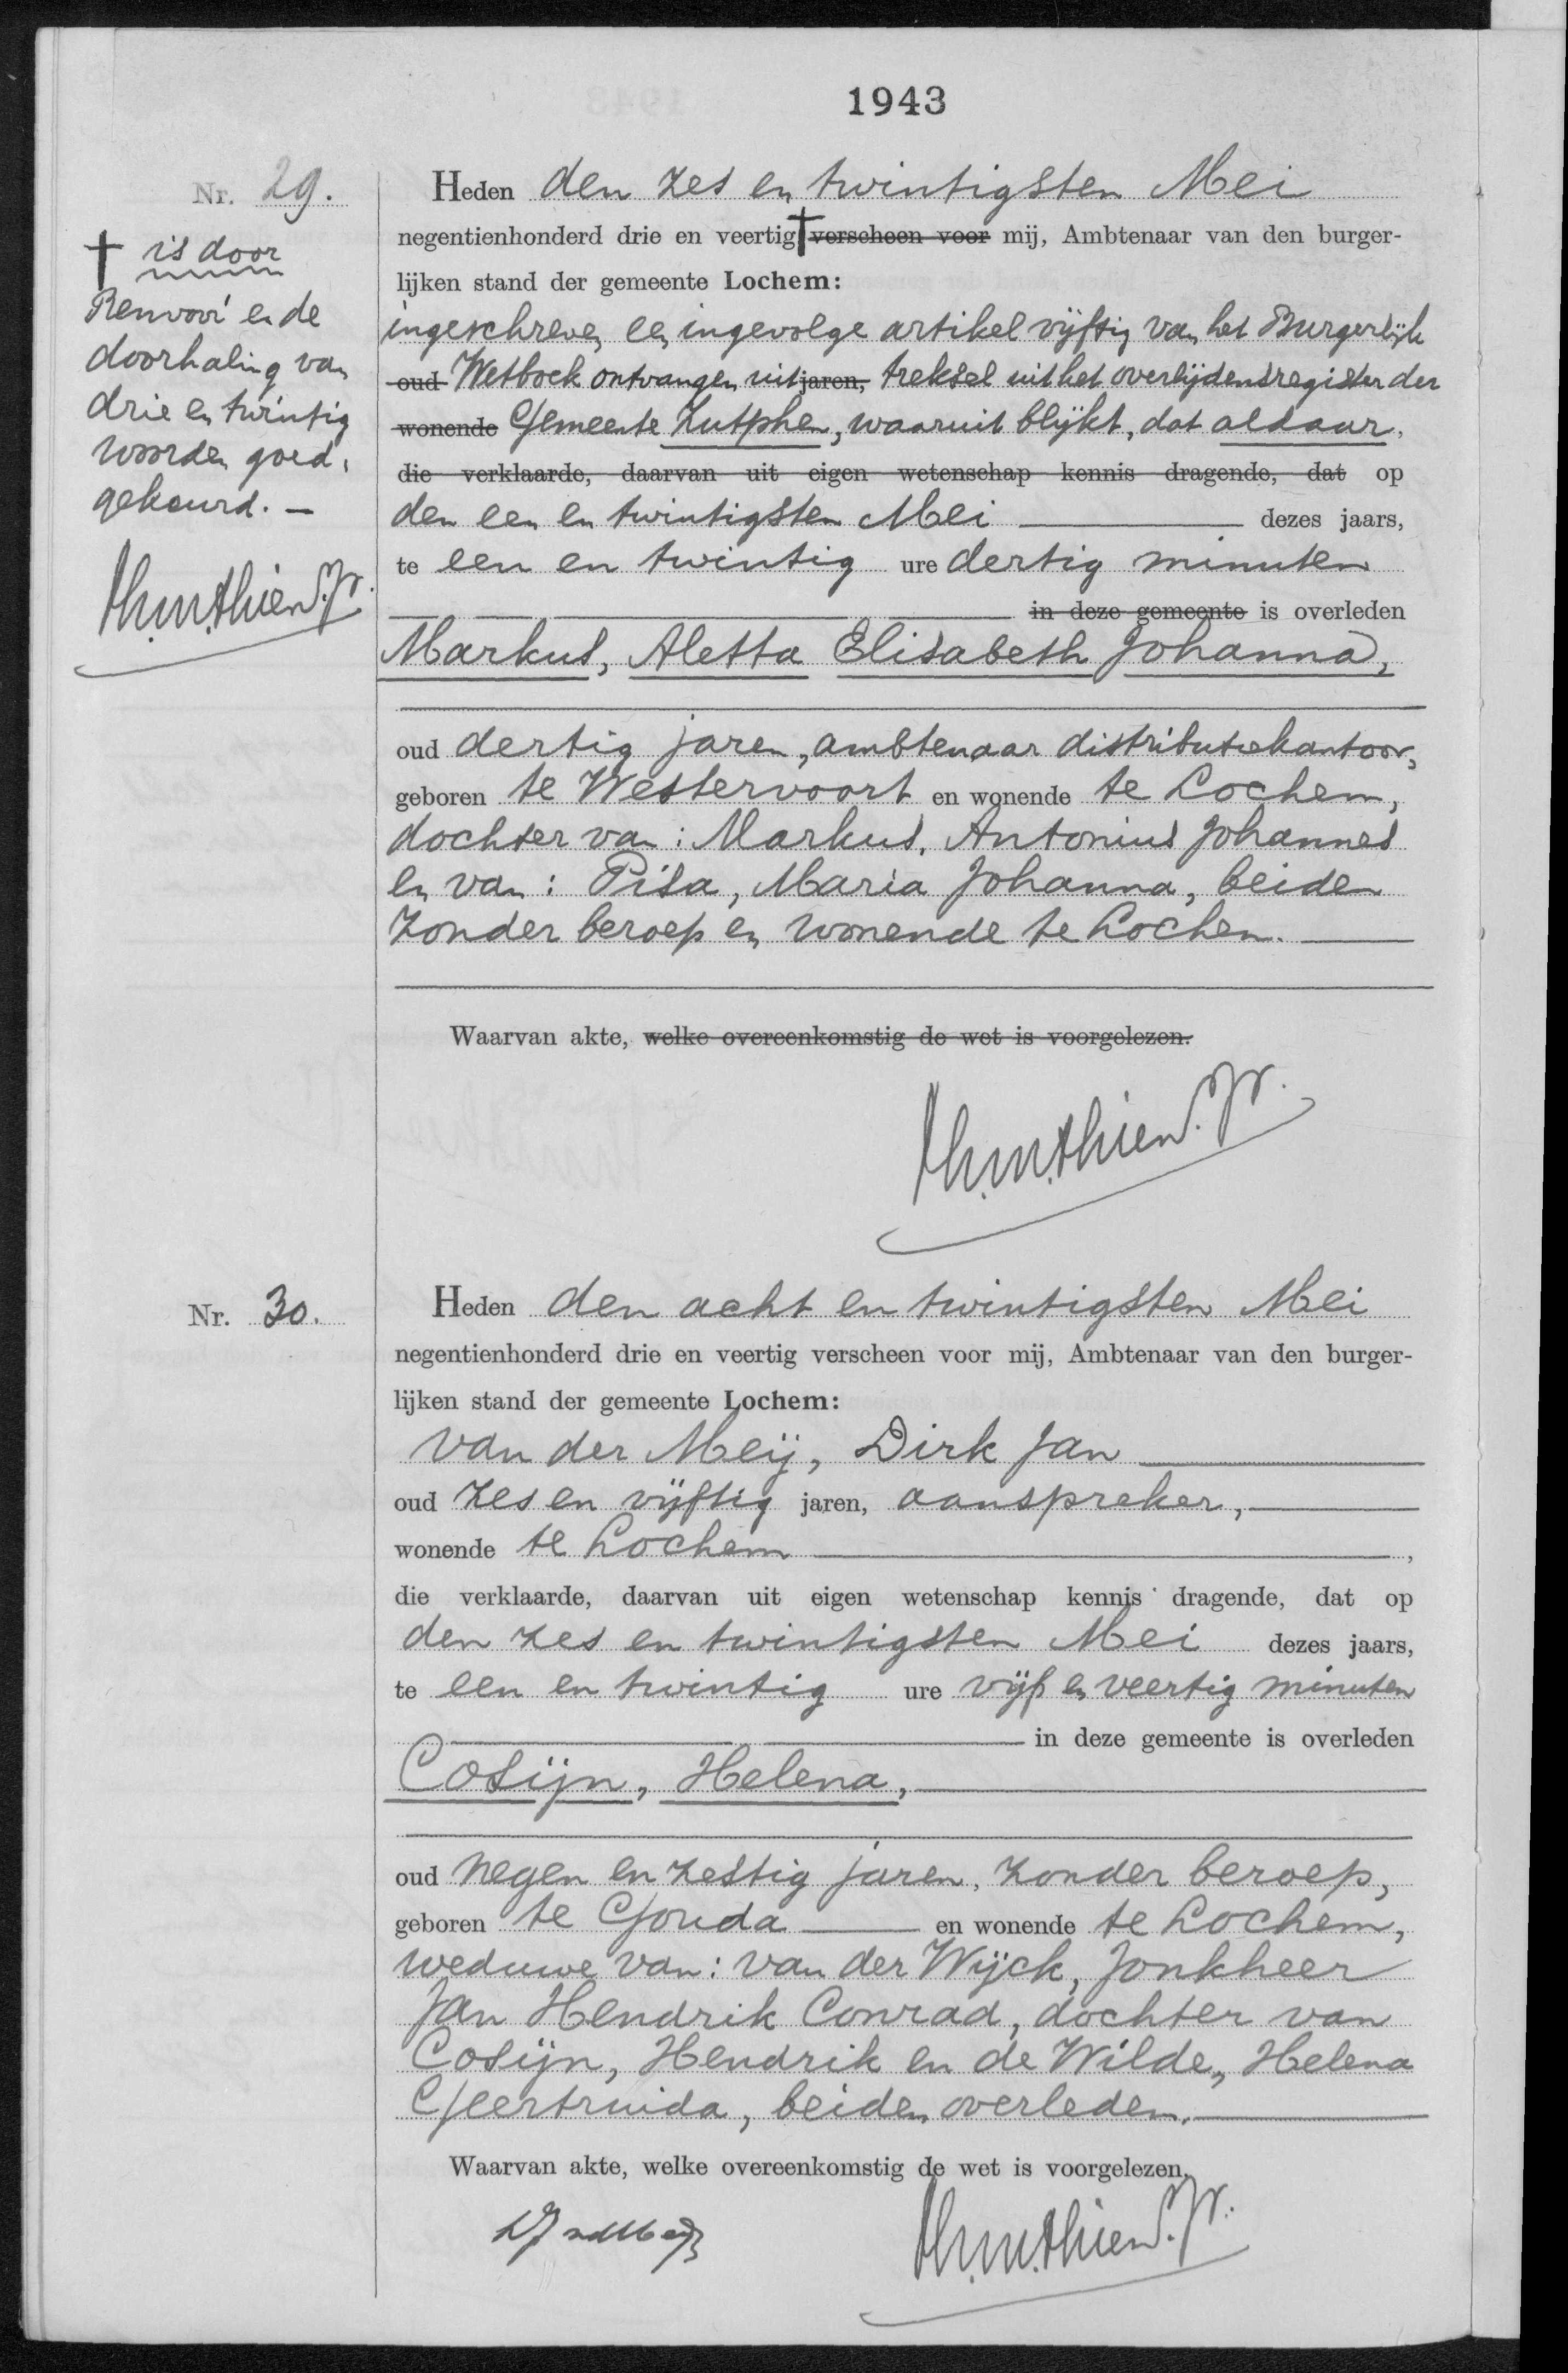 1943
Nr. 29.
† is door
Renvooi en de
doorhaling van
drie en twintig
woorden goed,
gekeurd. —
Heden den zes en twintigsten Mei
negentienhonderd drie en veertig † verscheen voor mij, Ambtenaar van den burger-
lijken stand der gemeente Lochem:
ingeschreven een ingevolge artikel vijftig van het Burgerlijk
oud Wetboek ontvangen uit jaren, treksel uit het overlijdensregister der
wonende Gemeente Zutphen, waaruit blijkt, dat aldaar,
die verklaarde, daarvan uit eigen wetenschap kennis dragende, dat op
den een en twintigsten Mei dezes jaars,
te een en twintig ure dertig minuten
in deze gemeente is overleden
Markus, Aletta Elisabeth Johanna,
oud dertig jaren, ambtenaar distributiekantoor,
geboren te Westervoort en wonende te Lochem,
dochter van: Markus, Antonius Johannes
en van: Pisa, Maria Johanna, beiden
zonder beroep en wonende te Lochem.
Waarvan akte, welke overeenkomstig de wet is voorgelezen.
Nr. 30.
Heden den acht en twintigsten Mei
negentienhonderd drie en veertig verscheen voor mij, Ambtenaar van den burger-
lijken stand der gemeente Lochem:
van der Meij, Dirk Jan
oud zes en vijftig jaren, aanspreker,
wonende te Lochem,
die verklaarde, daarvan uit eigen wetenschap kennis dragende, dat op
den zes en twintigsten Mei dezes jaars,
te een en twintig ure vijf en veertig minuten
in deze gemeente is overleden
Cosijn, Helena,
oud negen en zestig jaren, zonder beroep,
geboren te Gouda en wonende te Lochem,
weduwe van: van der Wijck, Jonkheer
Jan Hendrik Conrad, dochter van
Cosijn, Hendrik en de Wilde, Helena
Geertruida, beiden overleden.
Waarvan akte, welke overeenkomstig de wet is voorgelezen.